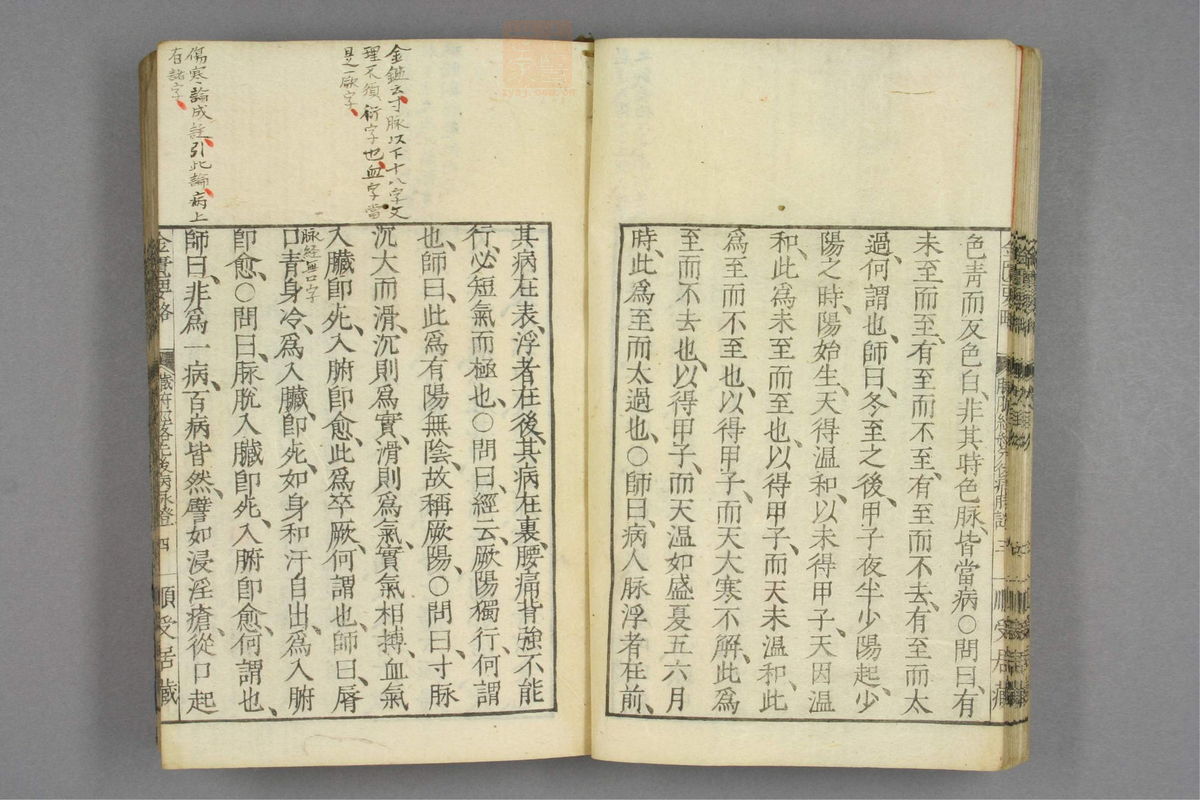 色青而反色白、非其時色脉、皆當病○問曰、有
未至而至、有至而不至、有至而不去、有至而太
過、何謂也、師曰、冬至之後、甲子夜半少陽起、少
陽之時、陽始生、天得温和、以未得甲子、天因温
和、此為未至而至也、以得甲子、而天未温和、此
爲至而不至也、以得甲子、而天大寒不解、此爲
至而不去也、以得甲子、而天温如盛夏五六月
時、此爲至而太過也、○師曰、病人脉浮者在前、
其病在表、浮者在後、其病在裏、腰痛背強不能
行、必短氣而極也、○問曰、經云、厥陽獨行、何謂
也、師曰、此爲有陽無陰、故稱厥陽、○問曰、寸脉
沉大而滑、沉則爲實、滑則爲氣、實氣相搏、血氣
入臟即死、入腑即愈、此爲卒厥、何謂也、師曰、脣
口青、身冷、爲入臟、即死、如身和、汗自出、爲入腑
即愈、○問曰、脉脫入臟即死、入腑即愈、何謂也、
師曰、非爲一病、百病皆然、譬如浸淫瘡、從口起
金鑑云寸脉以下十八字文
理不須衍字也、血字當
是厥字、
脉經無口字
傷寒論成註引此論、病上
有諸字、
三
順受居藏
金匱要略
藏府經絡先後病脉證
四
順受居藏